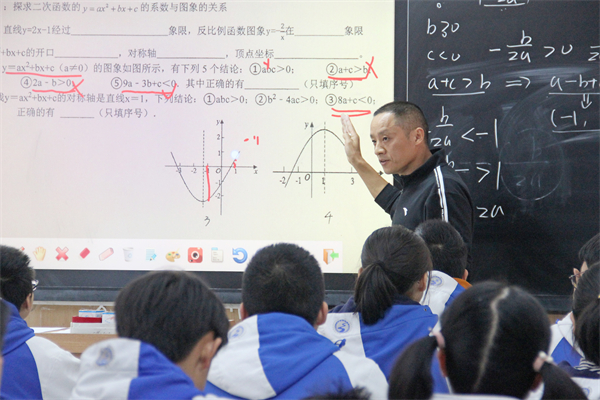 探求二次函数的 y = ax² + bx + c 的系数与图象的关系
直线y=2x-1经过________象限，反比例函数图象y=-2/x在________象限
+bx+c的开口________，对称轴________，顶点坐标
y=ax²+bx+c（a≠0）的图象如图所示，有下列 5 个结论：①abc＞0；②a+c＞b
④2a－b＞0；⑤9a－3b+c＜0．其中正确的有________（只填序号）
线y=ax²+bx+c的对称轴是直线x=1，下列结论：①abc＞0；②b²－4ac＞0；③8a+c＜0；
正确的有______（只填序号）．
y
2
1
-3 -2 -1 0 1 x
-1
-2
3
y
-2 -1 1 3
4
b≥0
c<0
-b/2a > 0
a+c > b ⇒ a-b+
(-1,
b/2a < -1
-b/ > 1
2a